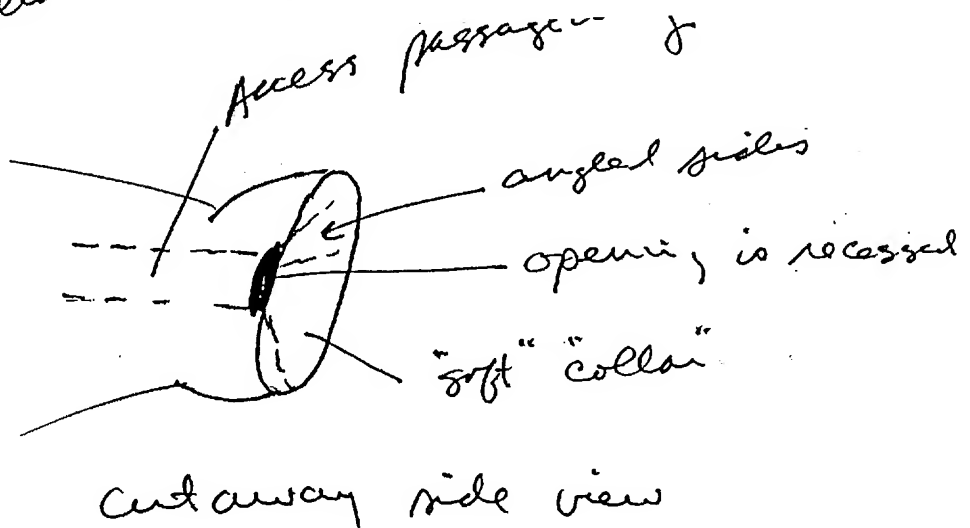 Access
angled sides
opening is recessed
"soft" "collar"
cutaway side view